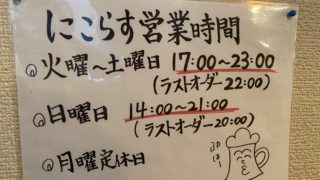 にこらす営業時間
火曜〜土曜日 17:00〜23:00
(ラストオーダー22:00)
日曜日 14:00〜21:00
(ラストオーダー20:00)
月曜定休日
ぷはー